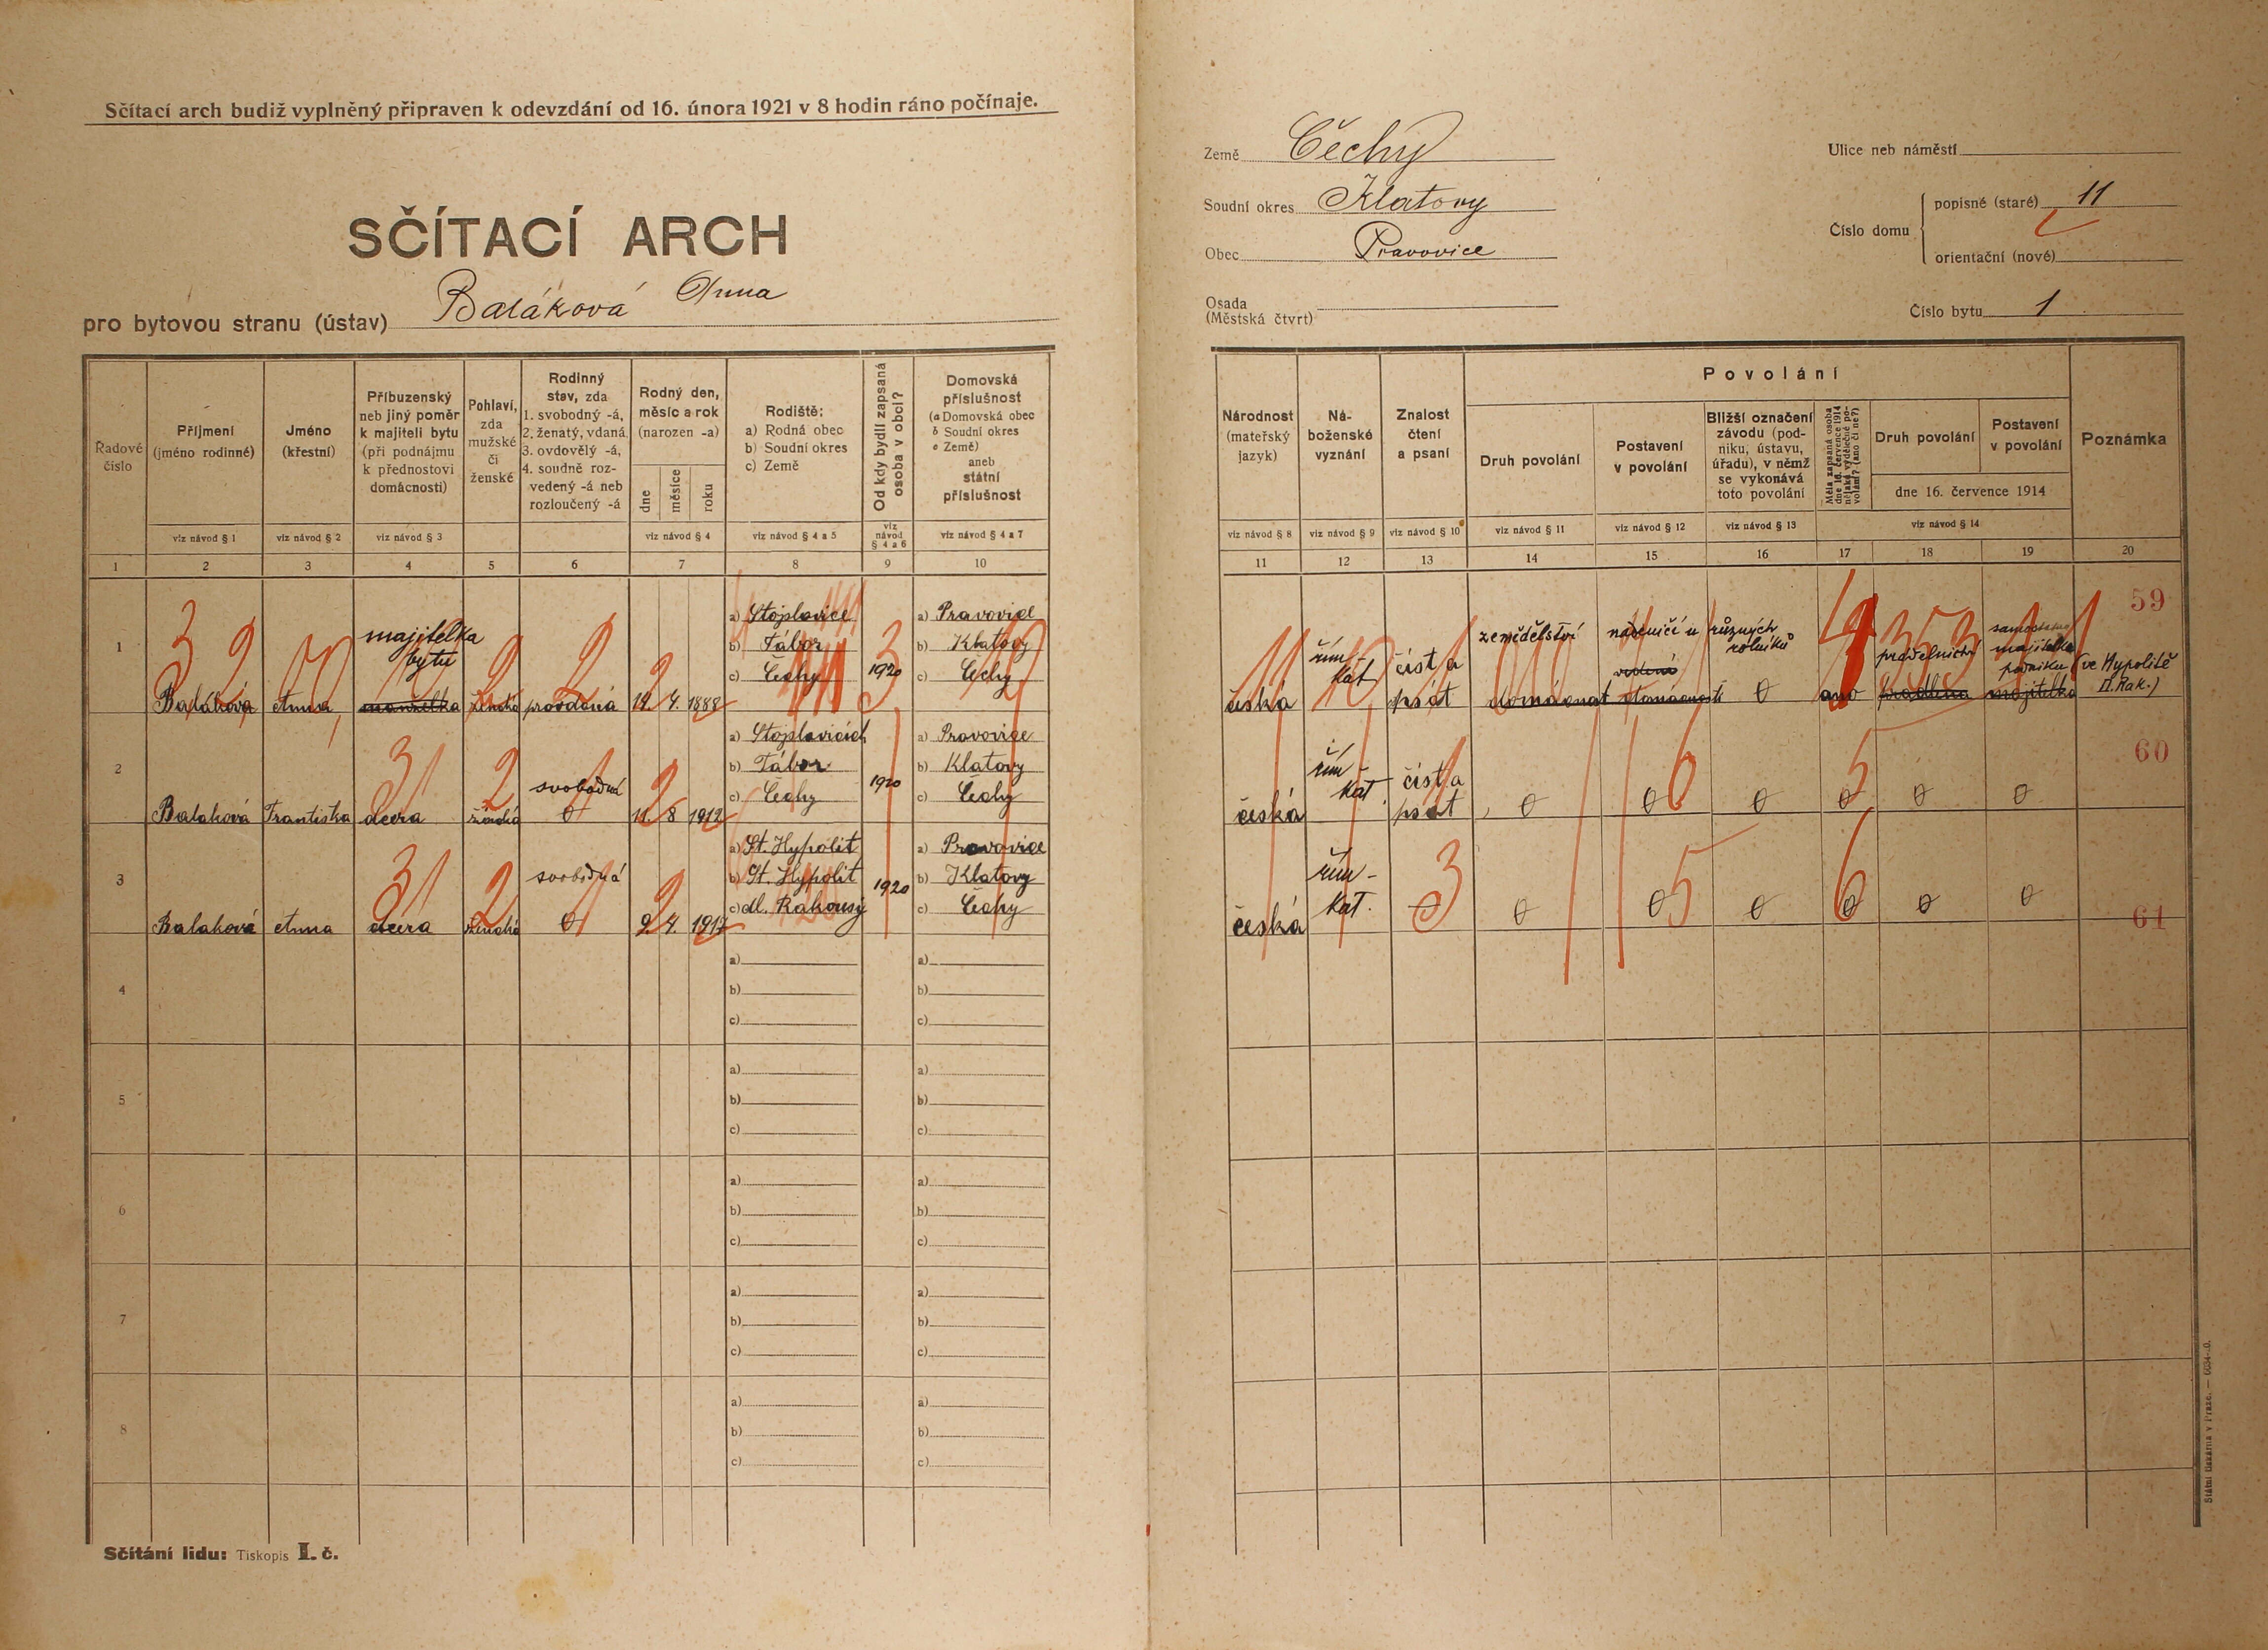 Sčítací arch budiž vyplněný připraven k odevzdání od 16. února 1921 v 8 hodin ráno počínaje.
SČÍTACÍ ARCH
pro bytovou stranu (ústav) Baláková Anna
Země Čechy
Soudní okres Klatovy
Obec Pravovice
Osada
(Městská čtvrt)
Ulice neb náměstí
Číslo domu
popisné (staré) 11
orientační (nové)
Číslo bytu 1
Řadové číslo
Příjmení (jméno rodinné)
Jméno (křestní)
Příbuzenský neb jiný poměr k majiteli bytu (při podnájmu k přednostovi domácnosti)
Pohlaví, zda mužské či ženské
Rodinný stav, zda 1. svobodný -á, 2. ženatý, vdaná 3. ovdovělý -á, 4. soudně rozvedený -á neb rozloučený -á
Rodný den, měsíc a rok (narozen -a)
dne měsíce roku
Rodiště: a) Rodná obec b) Soudní okres c) Země
Od kdy bydlí zapsaná osoba v obci?
Domovská příslušnost (a Domovská obec b Soudní okres c Země) aneb státní příslušnost
viz návod § 1 viz návod § 2 viz návod § 3 viz návod § 4 viz návod § 4 a 5 viz návod § 4 a 6 viz návod § 4 a 7
1 2 3 4 5 6 7 8 9 10
Národnost (mateřský jazyk)
Náboženské vyznání
Znalost čtení a psaní
Povolání
Druh povolání
Postavení v povolání
Bližší označení závodu (podniku, ústavu, úřadu), v němž se vykonává toto povolání
Měla zapsaná osoba dne 16. července 1914 nějaké výdělečné povolání? (ano či ne?)
Druh povolání
Postavení v povolání
dne 16. července 1914
Poznámka
viz návod § 8 viz návod § 9 viz návod § 10 viz návod § 11 viz návod § 12 viz návod § 13 viz návod § 14
11 12 13 14 15 16 17 18 19 20
1 Baláková Anna majitelka bytu manželka ženská provdaná 12. 4. 1888
a) Stojslavice
b) Tábor
c) Čechy
1920
a) Pravovice
b) Klatovy
c) Čechy
česká řím-kat číst a psát zemědělství domácnost různých rolníků 0 ano
majitelka podniku majitelka (ve Hypolitě
D. Rak.)
59
2 Balaková Františka dcera ženská svobodná 0 11. 8 1912
a) Stojslavicích
b) Tábor
c) Čechy
1920
a) Pravovice
b) Klatovy
c) Čechy
česká řím-kat číst a psát 0 0 0 0 0 0
60
3 Balaková Anna dcera ženská svobodná 0 9. 4. 1917
a) St. Hypolit
b) St. Hypolit
c) dl. Rakousy
1920
a) Pravovice
b) Klatovy
c) Čechy
česká řím-kat. – 0 0 0 0 0 0
61
4
a)
b)
c)
a)
b)
c)
5
a)
b)
c)
a)
b)
c)
6
a)
b)
c)
a)
b)
c)
7
a)
b)
c)
a)
b)
c)
8
a)
b)
c)
a)
b)
c)
Sčítání lidu: Tiskopis I. č.